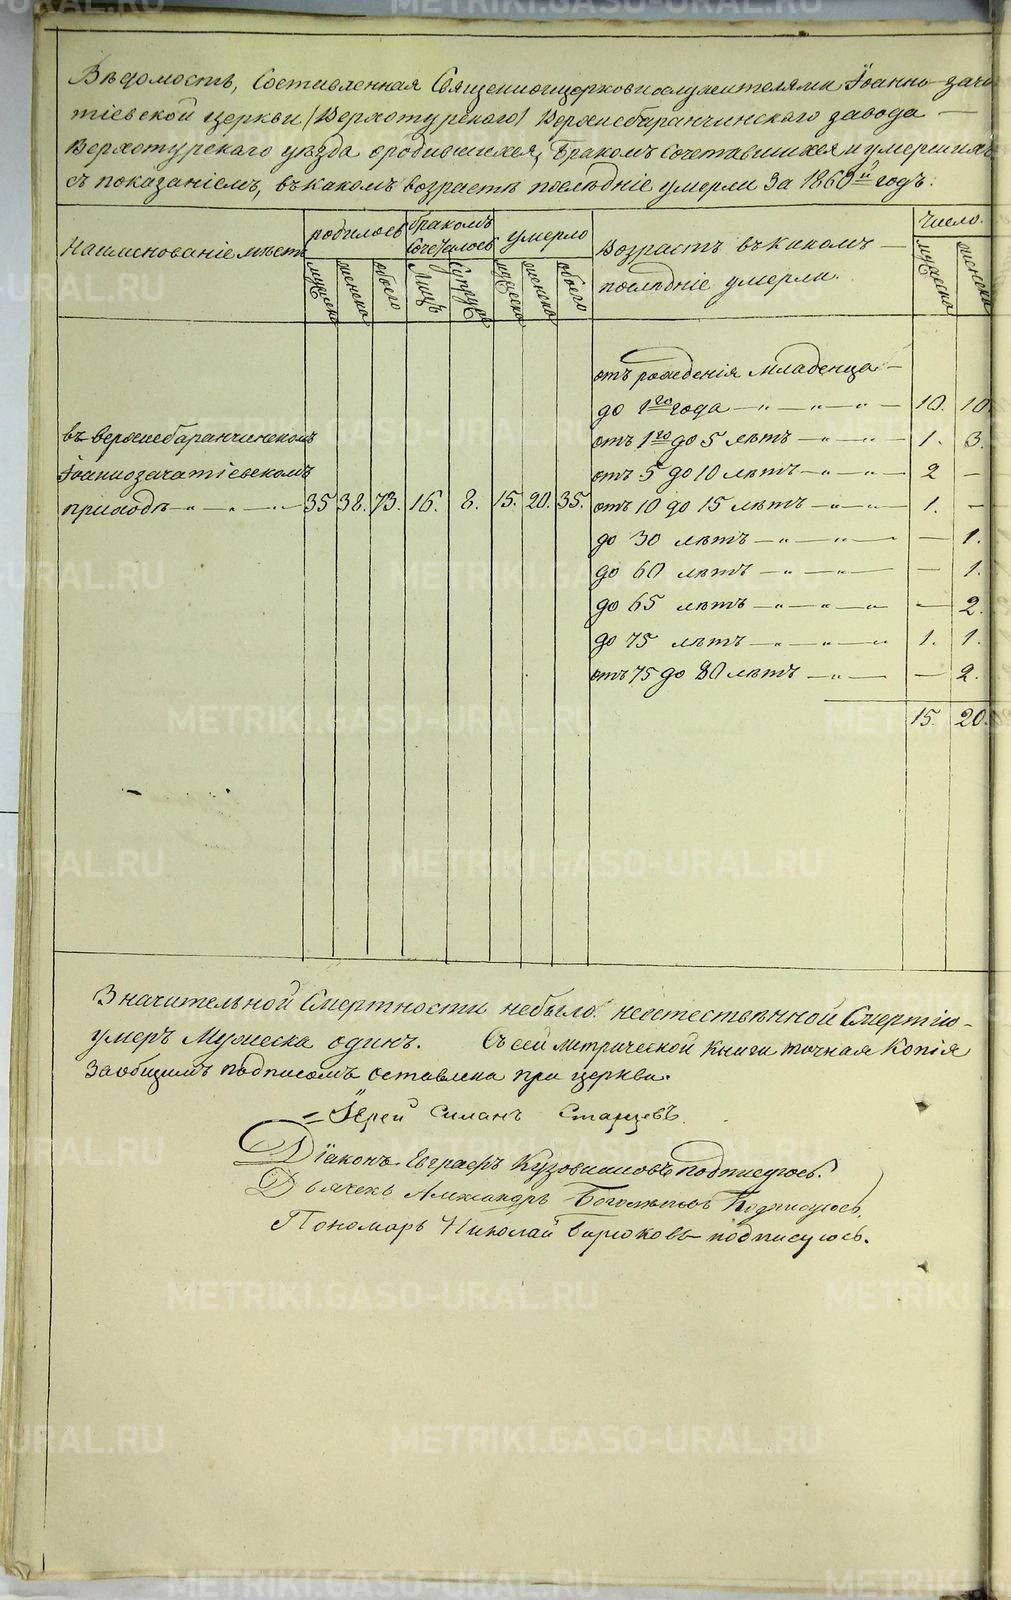 Вѣдомость, Составленная Священноицерковнослужителями Іоанно-зача
тіевской церкви (Верхотурского) Верхнебаранчинскаго завода —
Верхотурскаго уѣзда о родившихся, бракомъ сочетавшихся и умершихъ
съ показаніемъ, въ какомъ возрастѣ послѣдніе умерли за 1860й годъ.
Наименованіе мѣстъ родилось бракомъ сочеталось умерло Возрастъ въ какомъ — послѣдніе умерли. Число.
мужеска женска обоего Лицъ Супруж мужеска женска обоего мужеска женска
отъ рожденія младенца —
до 1го года — „ — „ — 10. 10.
въ верхнебаранчинскомъ отъ 1го до 5 лѣтъ — „ — „ — 1. 3.
Іоаннозачатіевскомъ отъ 5 до 10 лѣтъ — „ — „ — 2 —
приходѣ — „ — „ — 35 38. 73. 16. 8. 15. 20. 35. отъ 10 до 15 лѣтъ — „ — „ — 1. —
до 30 лѣтъ — „ — „ — — 1.
до 60 лѣтъ — „ — „ — — 1.
до 65 лѣтъ — „ — „ — — 2.
до 75 лѣтъ — „ — „ — 1. 1.
отъ 75 до 80 лѣтъ — „ — — 2.
15. 20.
Значительной Смертности небыло. неестественной Смертію —
умеръ Мужеска одинъ. Съ сей метрической книги точная Копія
За общимъ подписомъ оставлена при церкви.
Іерей Силанъ Старцевъ
Діаконъ Евграфъ подписуюсь.
Дьячекъ Александръ Подписуюсь.
Пономарь Николай Бирюковъ подписуюсь.
METRIKI.GASO-URAL.RU